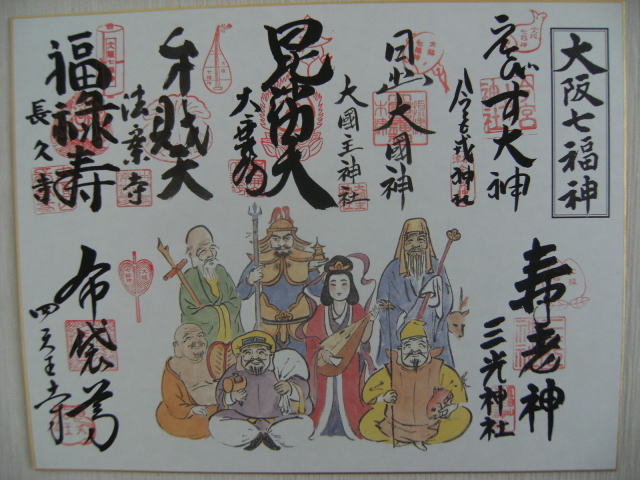 大阪七福神
えびす大神
今宮戎神社
日出大國神
大國主神社
毘沙門天
大乗坊
弁財天
法案寺
福禄寿
長久寺
寿老神
三光神社
布袋尊
四天王寺